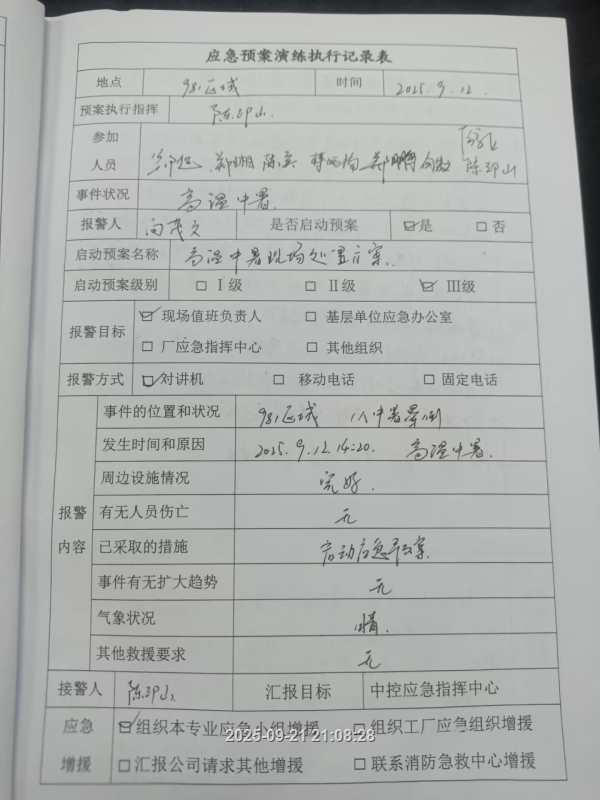 应急预案演练执行记录表
地点 981区域 时间 2025.9.12.
预案执行指挥 陈邵山.
参加
人员 郑湘 陈实 郑鹏 陈邵山
事件状况 高温中暑.
报警人 向茂文 是否启动预案 ☑是 □否
启动预案名称 高温中暑现场处置方案.
启动预案级别 □Ⅰ级 □Ⅱ级 ☑Ⅲ级
报警目标 ☑现场值班负责人 □基层单位应急办公室
□厂应急指挥中心 □其他组织
报警方式 ☑对讲机 □移动电话 □固定电话
报警内容
事件的位置和状况 981区域 1人中暑晕倒
发生时间和原因 2025.9.12.14:20. 高温中暑.
周边设施情况 完好.
有无人员伤亡 无
已采取的措施 启动应急预案.
事件有无扩大趋势 无
气象状况 晴.
其他救援要求 无
接警人 陈邵山 汇报目标 中控应急指挥中心
应急 ☑组织本专业应急小组增援 □组织工厂应急组织增援
2025-09-21 21:08:28
增援 □汇报公司请求其他增援 □联系消防急救中心增援